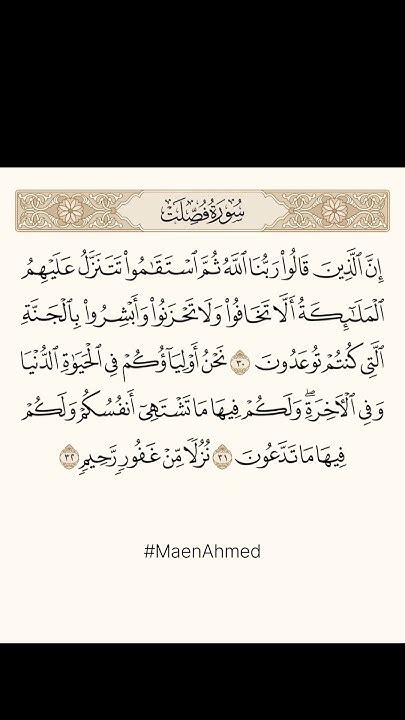 سُورَةُ فُصِّلَتْ
إِنَّ ٱلَّذِينَ قَالُوا۟ رَبُّنَا ٱللَّهُ ثُمَّ ٱسْتَقَـٰمُوا۟ تَتَنَزَّلُ عَلَيْهِمُ
ٱلْمَلَـٰٓئِكَةُ أَلَّا تَخَافُوا۟ وَلَا تَحْزَنُوا۟ وَأَبْشِرُوا۟ بِٱلْجَنَّةِ
ٱلَّتِى كُنتُمْ تُوعَدُونَ ٣٠ نَحْنُ أَوْلِيَآؤُكُمْ فِى ٱلْحَيَوٰةِ ٱلدُّنْيَا
وَفِى ٱلْـَٔاخِرَةِ ۖ وَلَكُمْ فِيهَا مَا تَشْتَهِىٓ أَنفُسُكُمْ وَلَكُمْ
فِيهَا مَا تَدَّعُونَ ٣١ نُزُلًا مِّنْ غَفُورٍ رَّحِيمٍ ٣٢
#MaenAhmed